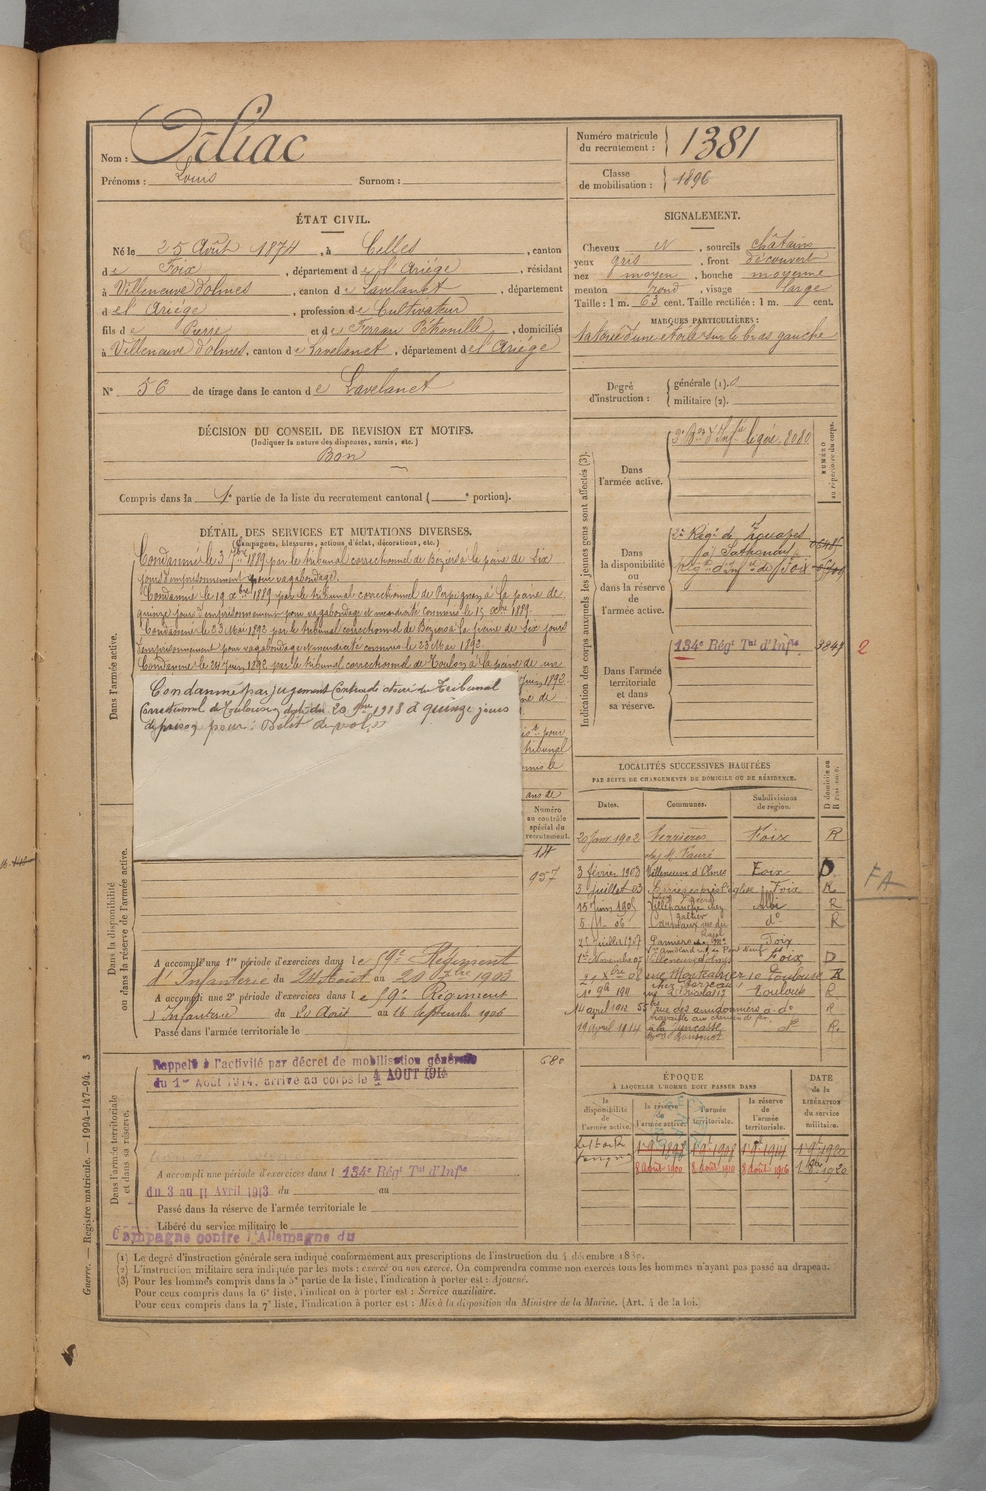 Nom : Orliac
Prénoms : Louis Surnom :
Numéro matricule du recrutement : 1381
Classe de mobilisation : 1896
ÉTAT CIVIL.
Né le 25 Août 1874, à Celles, canton
de Foix, département de l'Ariége, résidant
à Villeneuve d'olmes, canton de Lavelanet, département
de l'Ariége, profession de Cultivateur
fils de Pierre et de Ferran Pétronille, domiciliés
à Villeneuve d'olmes, canton de Lavelanet, département de l'Ariége
N° 56 de tirage dans le canton de Lavelanet
DÉCISION DU CONSEIL DE REVISION ET MOTIFS.
(Indiquer la nature des dispenses, sursis, etc.)
Bon
Compris dans la 1e partie de la liste du recrutement cantonal ( e portion).
SIGNALEMENT.
Cheveux N, sourcils châtains
yeux gris, front découvert
nez moyen, bouche moyenne
menton rond, visage large
Taille : 1 m. 63 cent. Taille rectifiée : 1 m. cent.
MARQUES PARTICULIÈRES :
tatoué d'une étoile sur le bras gauche
Degré d'instruction :
générale (1). 0
militaire (2).
Indication des corps auxquels les jeunes gens sont affectés (3).
NUMÉRO au répertoire du corps.
Dans l'armée active.
3e Bon d'Inf.ie légère. 8080
Dans la disponibilité ou dans la réserve de l'armée active.
3e Régt de Zouaves
(à) Sathonay
Régt d'Inf.ie de Foix
Dans l'armée territoriale et dans sa réserve.
134e Régt Tal d'Infie 3249 2
DÉTAIL DES SERVICES ET MUTATIONS DIVERSES.
(Campagnes, blessures, actions d'éclat, décorations, etc.)
Dans l'armée active.
Condamné le 3 7bre 1889 par le tribunal correctionnel de Béziers à la peine de six
jours d'emprisonnement pour vagabondage.
Condamné le 19 xbre 1889 par le tribunal correctionnel de Perpignan à la peine de
quinze jours d'emprisonnement pour vagabondage et mendicité commis le 15 xbre 1889.
Condamné le 23 Mai 1892 par le tribunal correctionnel de Béziers à la peine de six jours
d'emprisonnement pour vagabondage et mendicité commis le 23 Mai 1892.
Condamné le 24 Juin 1892 par le tribunal correctionnel de Toulon à la peine de un
Juin 1892
ne de
pour
tribunal
mis le
ans de
Condamné par jugement Contradictoire du Tribunal
Correctionnel de Toulouse, date du 20 9bre 1918 à quinze jours
de prison pour : Délit de vol.
Numéro au contrôle spécial du recrutement.
14
957
680
Dans la disponibilité ou dans la réserve de l'armée active.
A accompli une 1re période d'exercices dans le 59e Régiment
d'Infanterie du 24 Août au 20 7bre 1903
A accompli une 2e période d'exercices dans le 59e Régiment
d'Infanterie du 20 Août au 16 Septembre 1906
Passé dans l'armée territoriale le
Dans l'armée territoriale et dans sa réserve.
Rappelé à l'activité par décret de mobilisation générale
du 1er Août 1914, arrivé au corps le 4 AOUT 1914
A accompli une période d'exercices dans l 134e Régt Tal d'Infie
du 3 au 11 Avril 1913 du au
Passé dans la réserve de l'armée territoriale le
Libéré du service militaire le
Campagne contre l'Allemagne du
LOCALITÉS SUCCESSIVES HABITÉES
PAR SUITE DE CHANGEMENTS DE DOMICILE OU DE RÉSIDENCE.
Dates. Communes. Subdivisions de région. D domicile ou R résidence.
20 Janv 1902 Serrières Foix R
chez M. Fauré
3 février 1903 Villeneuve d'Olmes Foix D
5 Juillet 03 près l'église Foix R
15 Juin 1905 Villefranche chez Albi R
06 Carmaux rue du do R
Juillet 1907 Pamiers Foix
1er Novembre 07 Villeneuve d'olmes Foix D
08 rue Montcabrier 10 Toulouse R
1911 Toulouse R
14 avril 1912 55 rue des amidonniers à do R
travaille aux chemin de fer
19 avril 1914 do R
FA
ÉPOQUE
À LAQUELLE L'HOMME DOIT PASSER DANS
la disponibilité de l'armée active. la réserve de l'armée active. l'armée territoriale. la réserve de l'armée territoriale.
DATE de la LIBÉRATION du service militaire.
1 9bre 1920
8 août 1900 8 août 1910 8 août 1916
Guerre. — Registre matricule. — 1994-147-94. 3
(1) Le degré d'instruction générale sera indiqué conformément aux prescriptions de l'instruction du 4 décembre 1889.
(2) L'instruction militaire sera indiquée par les mots : exercé ou non exercé. On comprendra comme non exercés tous les hommes n'ayant pas passé au drapeau.
(3) Pour les hommes compris dans la 5e partie de la liste, l'indication à porter est : Ajourné.
Pour ceux compris dans la 6e liste, l'indication à porter est : Service auxiliaire.
Pour ceux compris dans la 7e liste, l'indication à porter est : Mis à la disposition du Ministre de la Marine. (Art. 4 de la loi.)